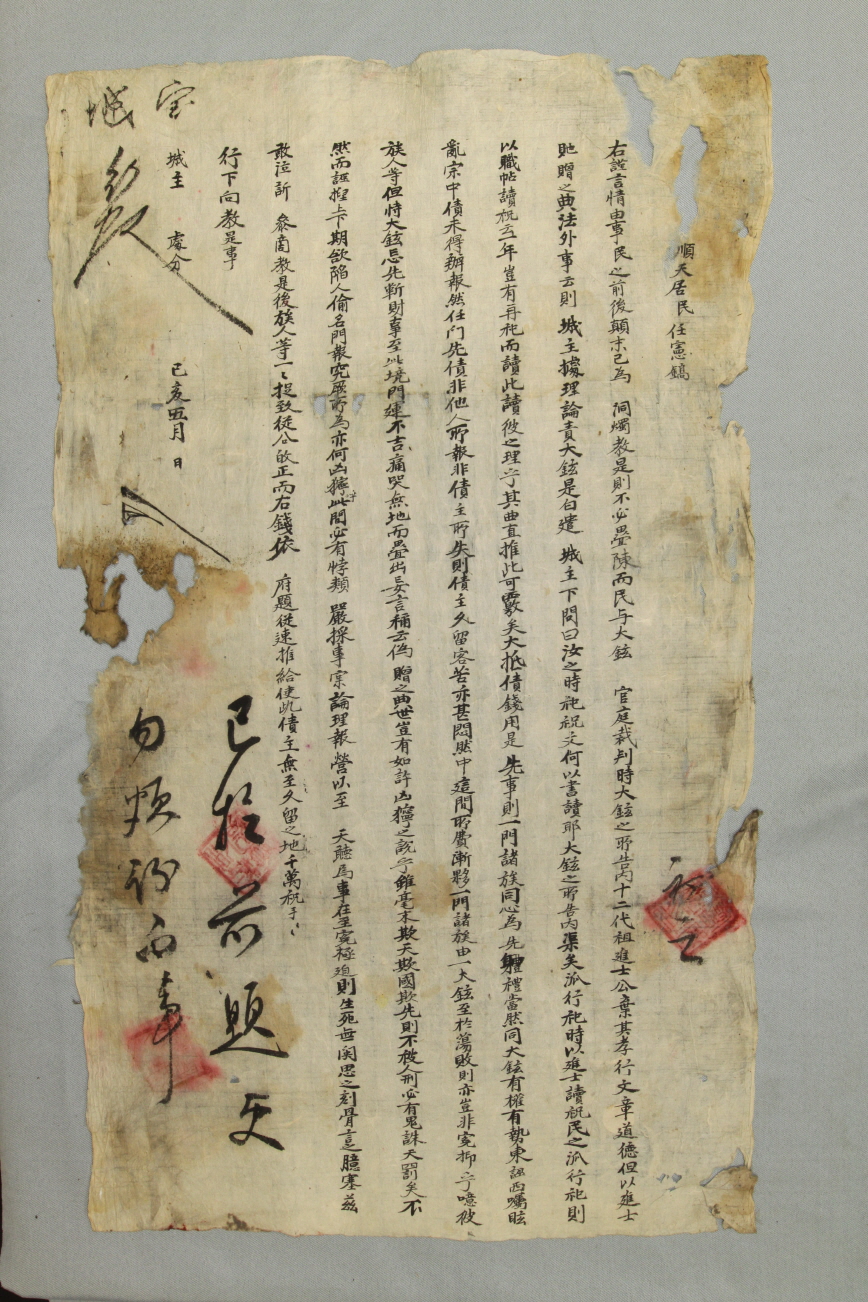 順天居民任憲鎬
右謹言情由事民之前後顚末已爲 洞燭教是則不必疊陳而民与大鉉 官庭裁判時大鉉之所告內十二代祖進士公棄其孝行文章道德但以進士
貤贈之典法外事云則 城主據理論責大鉉是白遣 城主下問曰汝之時祀祝文何以書讀耶大鉉之所告內渠矣派行祀時以進士讀祝民之派行祀則
以職帖讀祝云一年豈有再祀而讀此讀彼之理乎其曲直推此可覈矣大抵債錢用是 先事則一門諸族同心爲先軆禮當然同大鉉有權有勢東誣西囑眩
亂宗中債未得辦報然任門先債非他人所報非債主所失則債主久留客苦亦甚悶然中這間所費漸夥一門諸族由一大鉉至於蕩敗則亦豈非寃抑乎噫彼
族人等但恃大鉉忘先靳財事至此境門運不吉痛哭無地而疊出妄言稱云僞 贈之典世豈有如許凶獰之說乎雖毫末欺天欺國欺先則不被人刑必有鬼誅天罰矣不
然而誣捏上下期欲陷人偷名門報究厥所為亦何凶獰乎此間必有悖類 嚴採事宗論理報營以至 天聽爲事在至寃極迫則生死無関思之刻骨言之臆塞玆
敢泣訴 叅商教是後族人等一ㄟ捉致從公啟正而右錢依 府題從速推給使此債主無至久留之地千萬祝手ㄟ
行下向教是事
城主 處分
己亥五月 日
宝城
已於前題
勿煩向事